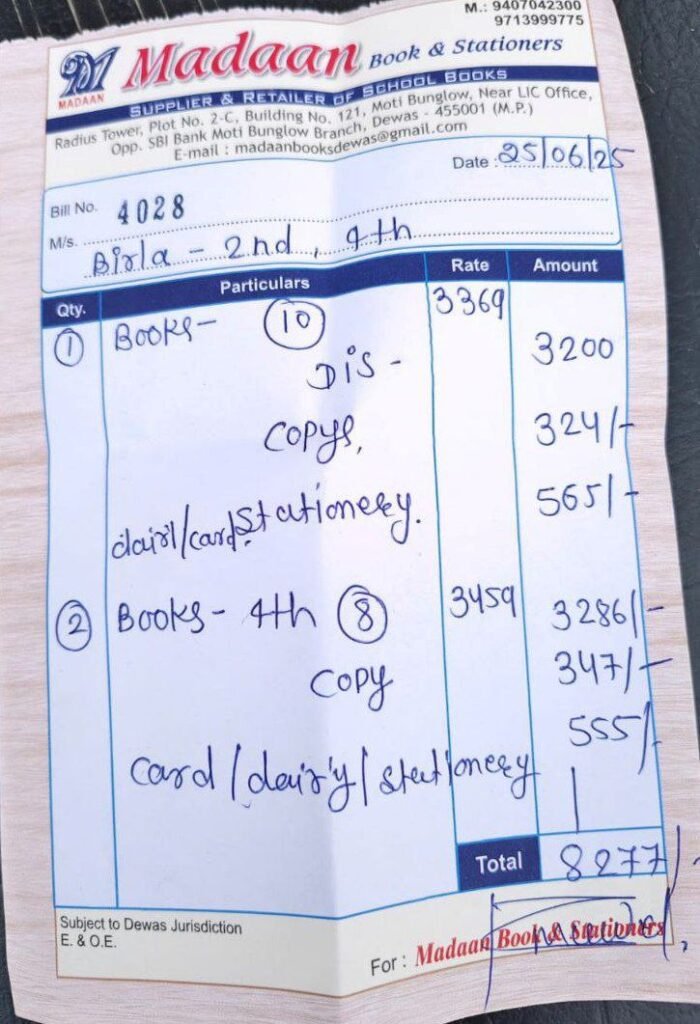 M.: 9407042300
9713999775
MADAAN
Madaan Book & Stationers
SUPPLIER & RETAILER OF SCHOOL BOOKS
Radius Tower, Plot No. 2-C, Building No. 121, Moti Bunglow, Near LIC Office,
Opp. SBI Bank Moti Bunglow Branch, Dewas - 455001 (M.P.)
E-mail : madaanbooksdewas@gmail.com
Date : 25/06/25
Bill No. 4028
M/s. Birla - 2nd, 4th
Qty. Particulars Rate Amount
1 Books - 10 3369
Dis - 3200
Copys, 324/-
dairl/card. Stationery. 565/-
2 Books - 4th 8 3459 3286/-
Copy 347/-
card/dairy/stationery 555/-
Total 8277/-
Subject to Dewas Jurisdiction
E. & O.E.
For : Madaan Book & Stationers